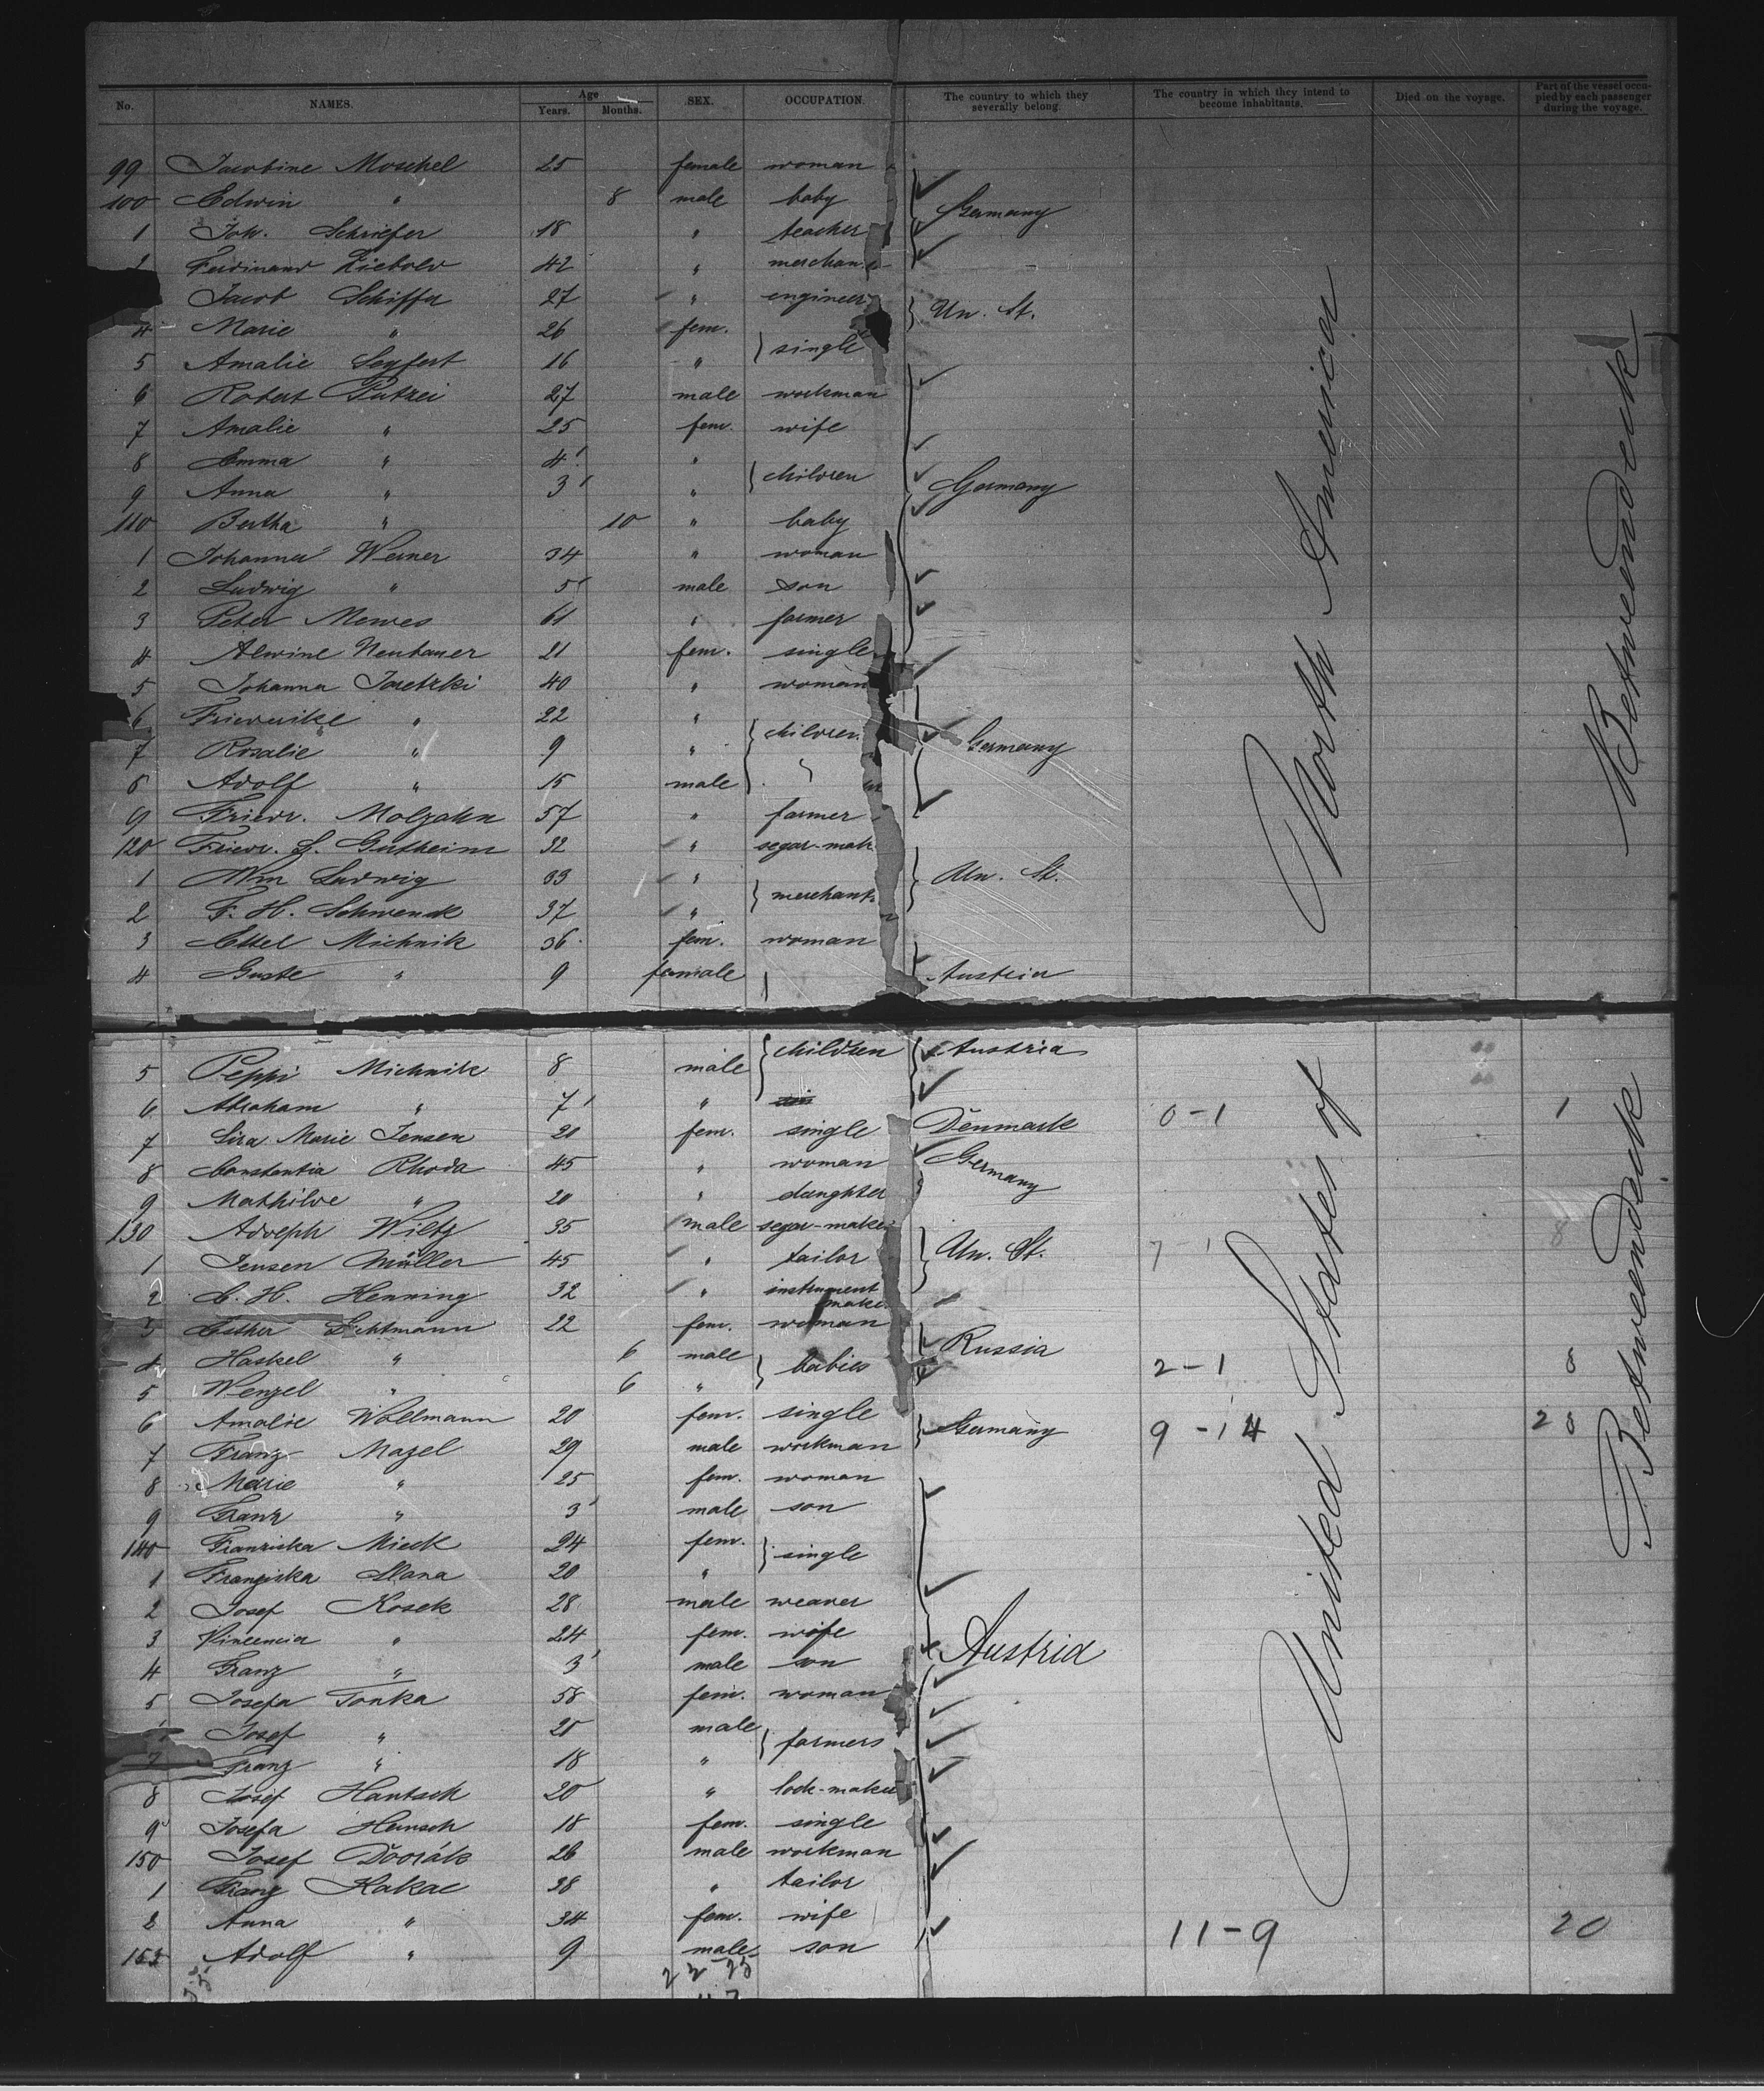 No. NAMES. Age Years. Months. SEX. OCCUPATION. The country to which they severally belong. The country in which they intend to become inhabitants. Died on the voyage. Part of the vessel occupied by each passenger during the voyage.
99 Jacobine Moschel 25 female woman
100 Edwin " 8 male baby Germany
1 Joh. Schriefer 18 " teacher
2 Ferdinand Ziebold 42 " merchan
Jacob Schiffer 27 " engineer Un. St.
4 Marie " 26 fem.
5 Amalie Seyfert 16 " single
6 Robert Putzei 27 male workman
7 Amalie " 25 fem. wife
8 Emma " 4 "
9 Anna " 3 " children Germany
110 Bertha " 10 " baby
1 Johanna Werner 34 " woman
2 Ludwig " 5 male son
3 Peter Mewes 61 " farmer
4 Alwine Neubauer 21 fem. single
5 Johanna Joretzki 40 " woman
6 Friederike " 22 "
7 Rosalie " 9 " children Germany
8 Adolf " 15 male
9 Friedr. Molzahn 57 " farmer
120 Friedr. L. Gutheim 32 " segar-mak
1 Wm Ludwig 33 " Un. St.
2 F. H. Schwenck 37 " merchants
3 Ettel Michnik 36 fem. woman
4 Guste " 9 female Austria
5 Peppi Michnik 8 male children Austria
6 Abraham " 7 "
7 Sira Marie Jensen 20 fem. single Denmark 0-1 1
8 Constantia Rhoda 45 " woman Germany
9 Mathilde " 20 " daughter
130 Adolph Wiltz 35 male segar-maker
1 Jensen Müller 45 " tailor Un. St. 7-1 8
2 C. H. Henning 32 " instrument maker
3 Esther Lichtmann 22 fem. woman
4 Haskel " 6 male Russia
5 Wenzel " 6 " babies 2-1 8
6 Amalie Wollmann 20 fem. single
7 Franz Mazel 29 male workman Germany 9-14 28
8 Marie " 25 fem. woman
9 Franz " 3 male son
140 Franziska Mieck 24 fem.
1 Franziska Slana 20 " single
2 Josef Kosek 28 male weaver
3 Vincencia " 24 fem. wife
4 Franz " 3 male son Austria
5 Josefa Tonka 58 fem. woman
Josef " 20 male
7 Franz " 18 " farmers
8 Josef Hantsch 20 " lock-maker
9 Josefa Hansch 18 fem. single
150 Josef Dvořák 26 male workman
1 Franz Kakac 38 " tailor
2 Anna " 34 fem. wife
153 Adolf " 9 male son 11-9 20
United States of North America
Betweendeck
Betweendeck